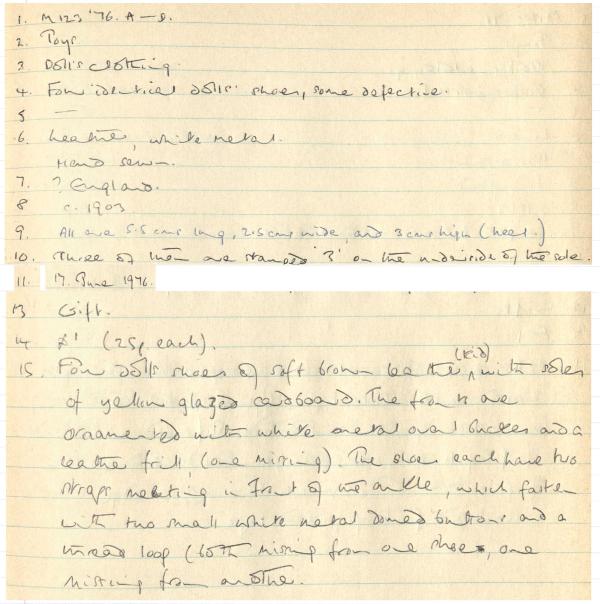 1. M123 '76. A-D.
2. Toys
3. Doll's clothing.
4. Four identical dolls' shoes, some defective.
5 —
6. Leather, white metal.
Hand sewn.
7. ? England.
8 c. 1903
9. All are 5.5 cms long, 2.5 cms wide, and 3 cms high (heel.)
10. Three of them are stamped '3' on the underside of the sole.
11. 17. June 1976.
13 Gift.
14 (25p each).
15. Four dolls shoes of soft brown leather (kid), with soles
of yellow glazed cardboard. The fronts are
ornamented with white metal oval buckles and a
leather frill, (one missing). The shoes each have two
straps meeting in front of the ankle, which fasten
with two small white metal domed buttons and a
thread loop (both missing from one shoe, one
missing from another.